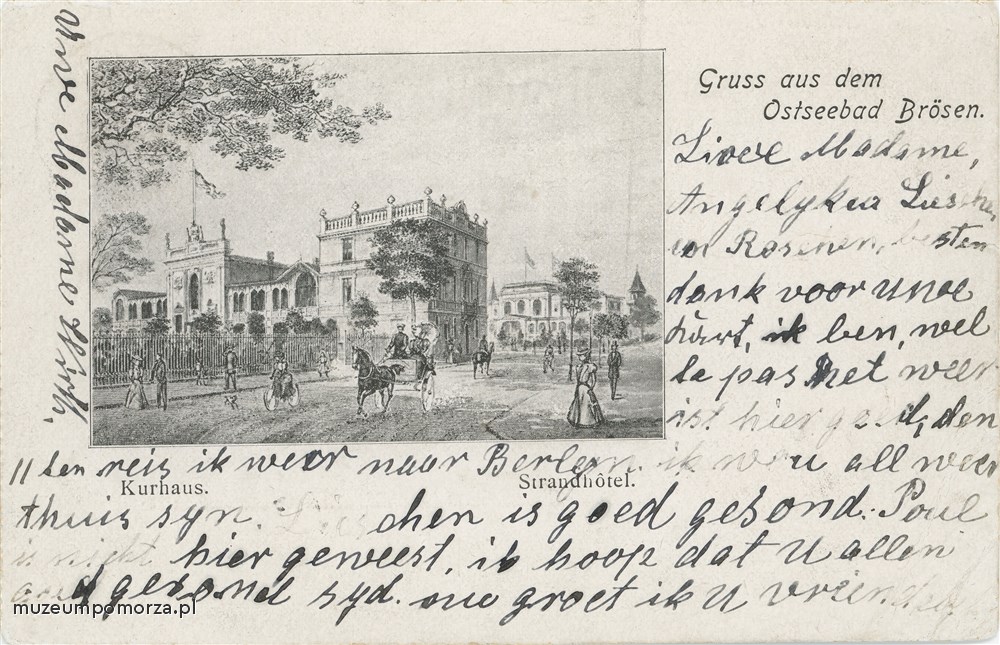 Gruss aus dem
Ostseebad Brösen.
Madame,
Angelyka
in besten
dank voor uwe
kart, ik ben, wel
te pas het weer
ist hier goed, den
11 ten reis ik weer naar Berlyn. ik u all weer
Kurhaus. Strandhôtel.
thuis syn. Lieschen is goed gesond. Poul
is nicht hier geweest, ik hoop dat U allen
goed gesond syd. nu groet ik U
Uwe Madame
muzeumpomorza.pl